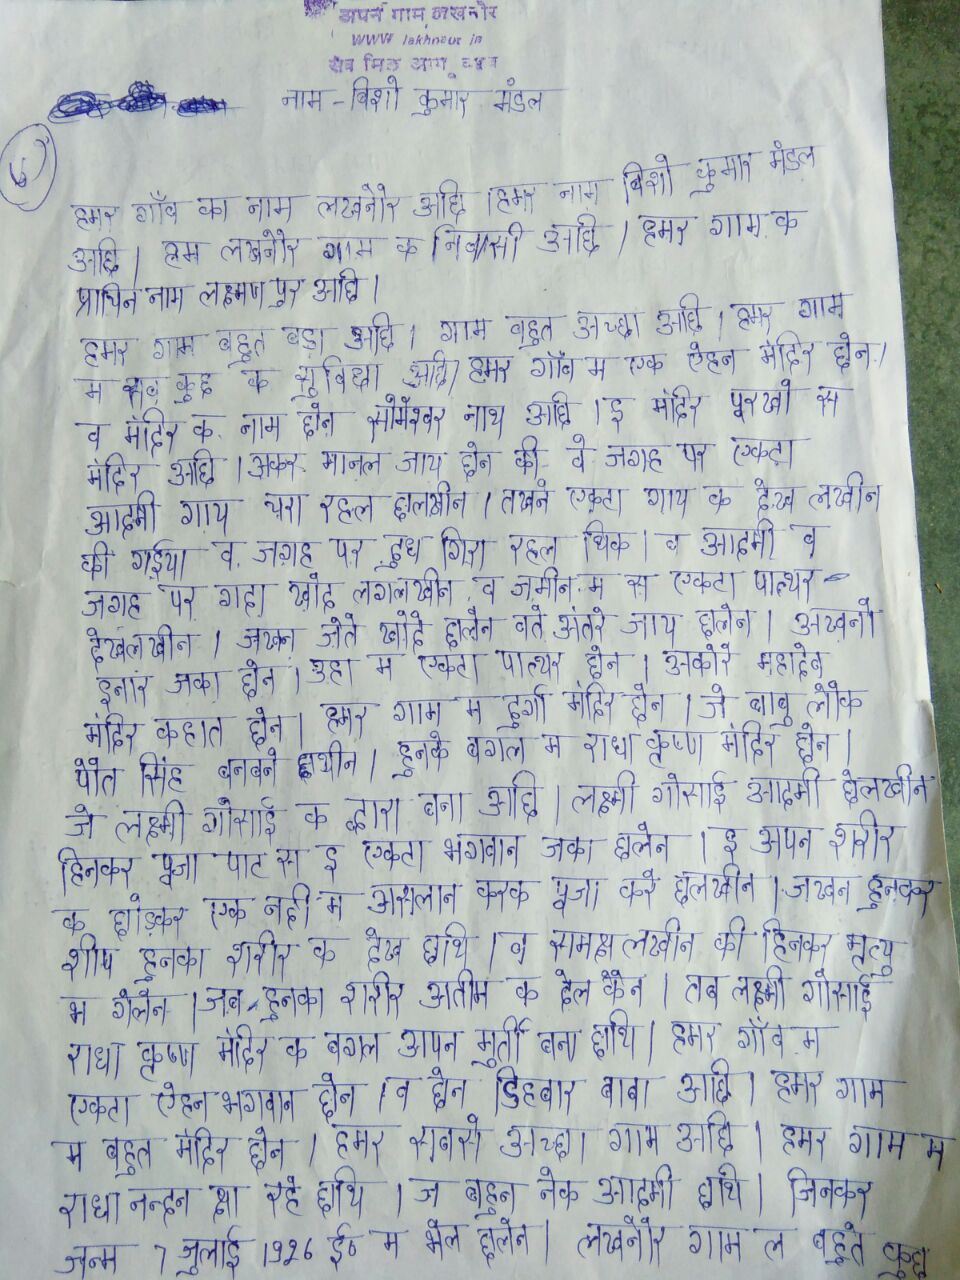 अपन गाम लखनोर
www lakhnaur in
नाम - बिशो कुमार मंडल
6
हमर गाँव का नाम लखनोर अछि। हमर नाम बिशो कुमार मंडल
अछि। हम लखनोर गाम क निवासी अछि। हमर गाम क
प्राचिन नाम लक्ष्मण पुर अछि।
हमर गाम बहुत बड़ा अछि। गाम बहुत अच्छा अछि। हमर गाम
म सब कुछ क सुविधा अछि। हमर गाँव म एक ऐहन मंदिर छेन।
व मंदिर क नाम छेन सोमेश्वर नाथ अछि। इ मंदिर पूरखो स
मंदिर अछि। अकर मानल जाय छेन की वे जगह पर एकटा
आदमी गाय चरा रहल छलखीन। तखने एकटा गाय क देख लखीन
की गईया व जगह पर दुध गिरा रहल थिक। व आदमी व
जगह पर गदा खोद लगलखीन व जमीन म स एकटा पात्थर
देखलखीन। जखन जेते खोदे छलेन वते अंतरे जाय छलेन। अखनो
इनार जका छेन। उहा म एकटा पात्थर छेन। अकोरे महादेव
मंदिर कहात छेन। हमर गाम म दुर्गा मंदिर छेन। जे बाबु लोक
पोत सिंह बनबने छथीन। हुनके बगल म राधा कृष्ण मंदिर छेन।
जे लक्ष्मी गोसाई क द्वारा बना अछि। लक्ष्मी गोसाई आदमी छेलखीन
हिनकर पूजा पाट स इ एकटा भगवान जका छलेन। इ अपन शरीर
क छोड़कर एक नदी म असलान करक पूजा करे छलखीन। जखन हुनकर
शीष हुनका शरीर क देख छथि। व समक्ष लखीन की हिनकर मृत्यु
भ गेलेन। जब हुनका शरीर अतीम क देल केन। तब लक्ष्मी गोसाई
राधा कृष्ण मंदिर क बगल अपन मुर्ती बना छथि। हमर गाँव म
एकटा ऐहन भगवान छेन। व छेन डिहबार बाबा अछि। हमर गाम
म बहुत मंदिर छेन। हमर सबसे अच्छा गाम अछि। हमर गाम म
राधा नन्दन झा रहे छथि। ज बहुत नेक आदमी छथि। जिनकर
जन्म 7 जुलाई 1926 ई० म भेल छेलेन। लखनोर गाम ल बहुते कुछ